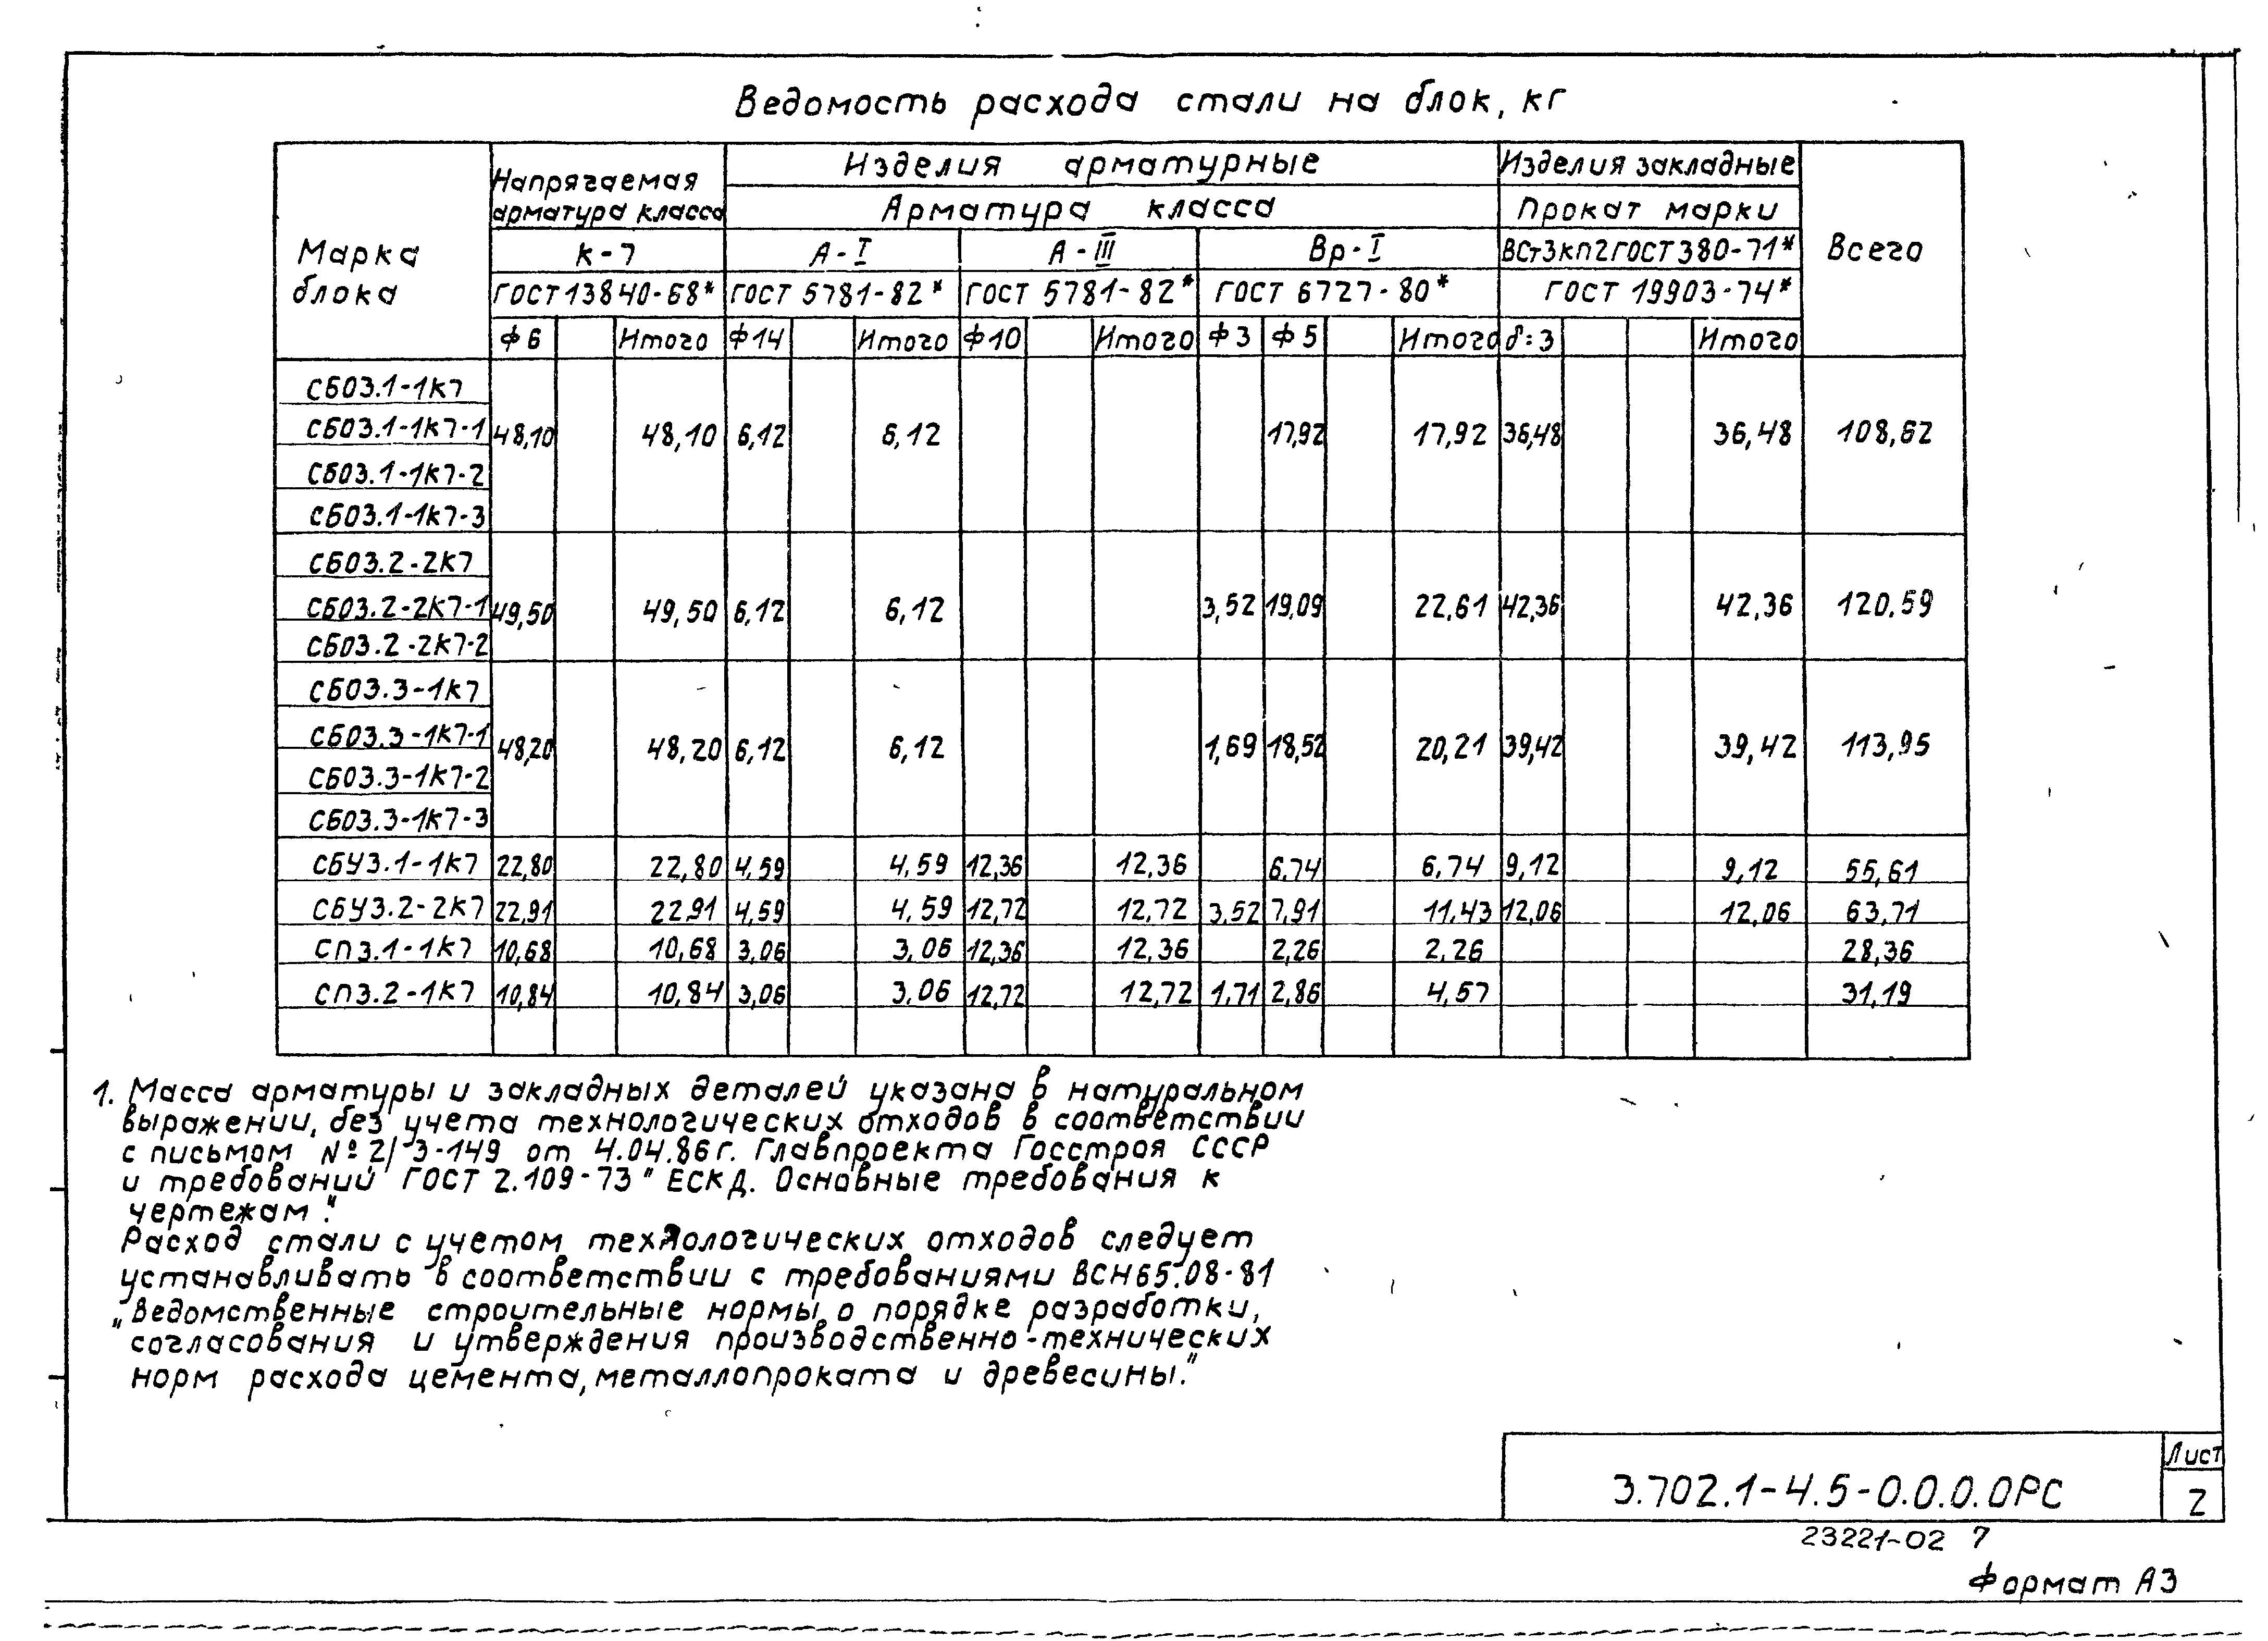 Ведомость расхода стали на блок, кг
Марка блока
Напрягаемая арматура класса
Изделия арматурные
Изделия закладные
Всего
Арматура класса
Прокат марки
К-7 А-I А-III Вр-I ВСт3кп2ГОСТ380-71*
ГОСТ13840-68* ГОСТ 5781-82* ГОСТ 5781-82* ГОСТ 6727-80* ГОСТ 19903-74*
Ф6 Итого Ф14 Итого Ф10 Итого Ф3 Ф5 Итого δ=3 Итого
СБ03.1-1К7
СБ03.1-1К7-1 48,10 48,10 6,12 6,12 17,92 17,92 36,48 36,48 108,62
СБ03.1-1К7-2
СБ03.1-1К7-3
СБ03.2-2К7
СБ03.2-2К7-1 49,50 49,50 6,12 6,12 3,52 19,09 22,61 42,36 42,36 120,59
СБ03.2-2К7-2
СБ03.3-1К7
СБ03.3-1К7-1 48,20 48,20 6,12 6,12 1,69 18,52 20,21 39,42 39,42 113,95
СБ03.3-1К7-2
СБ03.3-1К7-3
СБУ3.1-1К7 22,80 22,80 4,59 4,59 12,36 12,36 6,74 6,74 9,12 9,12 55,61
СБУ3.2-2К7 22,91 22,91 4,59 4,59 12,72 12,72 3,52 7,91 11,43 12,06 12,06 63,71
СП3.1-1К7 10,68 10,68 3,06 3,06 12,36 12,36 2,26 2,26 28,36
СП3.2-1К7 10,84 10,84 3,06 3,06 12,72 12,72 1,71 2,86 4,57 31,19
1. Масса арматуры и закладных деталей указана в натуральном
выражении, без учета технологических отходов в соответствии
с письмом № 2/3-149 от 4.04.86г. Главпроекта Госстроя СССР
и требований ГОСТ 2.109-73 "ЕСКД. Основные требования к
чертежам".
Расход стали с учетом технологических отходов следует
устанавливать в соответствии с требованиями ВСН65.08-81
„Ведомственные строительные нормы о порядке разработки,
согласования и утверждения производственно-технических
норм расхода цемента, металлопроката и древесины."
3.702.1-4.5-0.0.0.0РС
Лист
2
23221-02 7
Формат А3